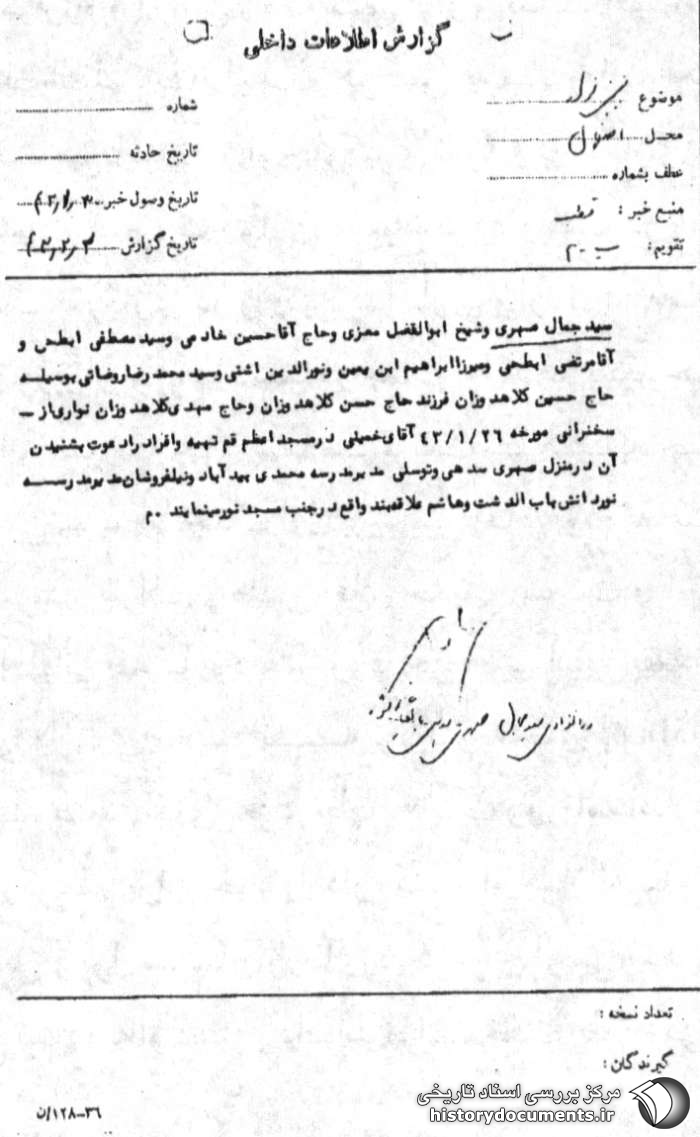 گزارش اطلاعات داخلی
موضوع
محل اصفهان
عطف بشماره
منبع خبر :
تقویم: ب - ۲
شماره
تاریخ حادثه
تاریخ وصول خبر
تاریخ گزارش
سید جمال صهری وشیخ ابوالفضل معزی وحاج آقا حسین خادمی وسید مصطفی ابطحی و
آقا مرتضی ابطحی ومیرزا ابراهیم ابن یمین ونورالدین اشنی وسید محمد رضا روضاتی بوسیله
حاج حسین کلاهدوزان فرزند حاج حسن کلاهدوزان وحاج مهدی کلاهدوزان نواری از -
سخنرانی مورخه ۴۳/۱/۲۶ آقای خمینی در مسجد اعظم قم تهیه وافراد را دعوت بشنیدن
آن در منزل صهری سدهی وتوسلی مدیر مدرسه محمدی بیدآباد ونیلفروشان مدیر مدرسه
نوردانش باب الدشت وهاشم علاقه‌بند واقع در جنب مسجد نو مینمایند . م
تعداد نسخه :
گیرندگان :
۳۶-۱۲۸/ن
مرکز بررسی اسناد تاریخی
historydocuments.ir